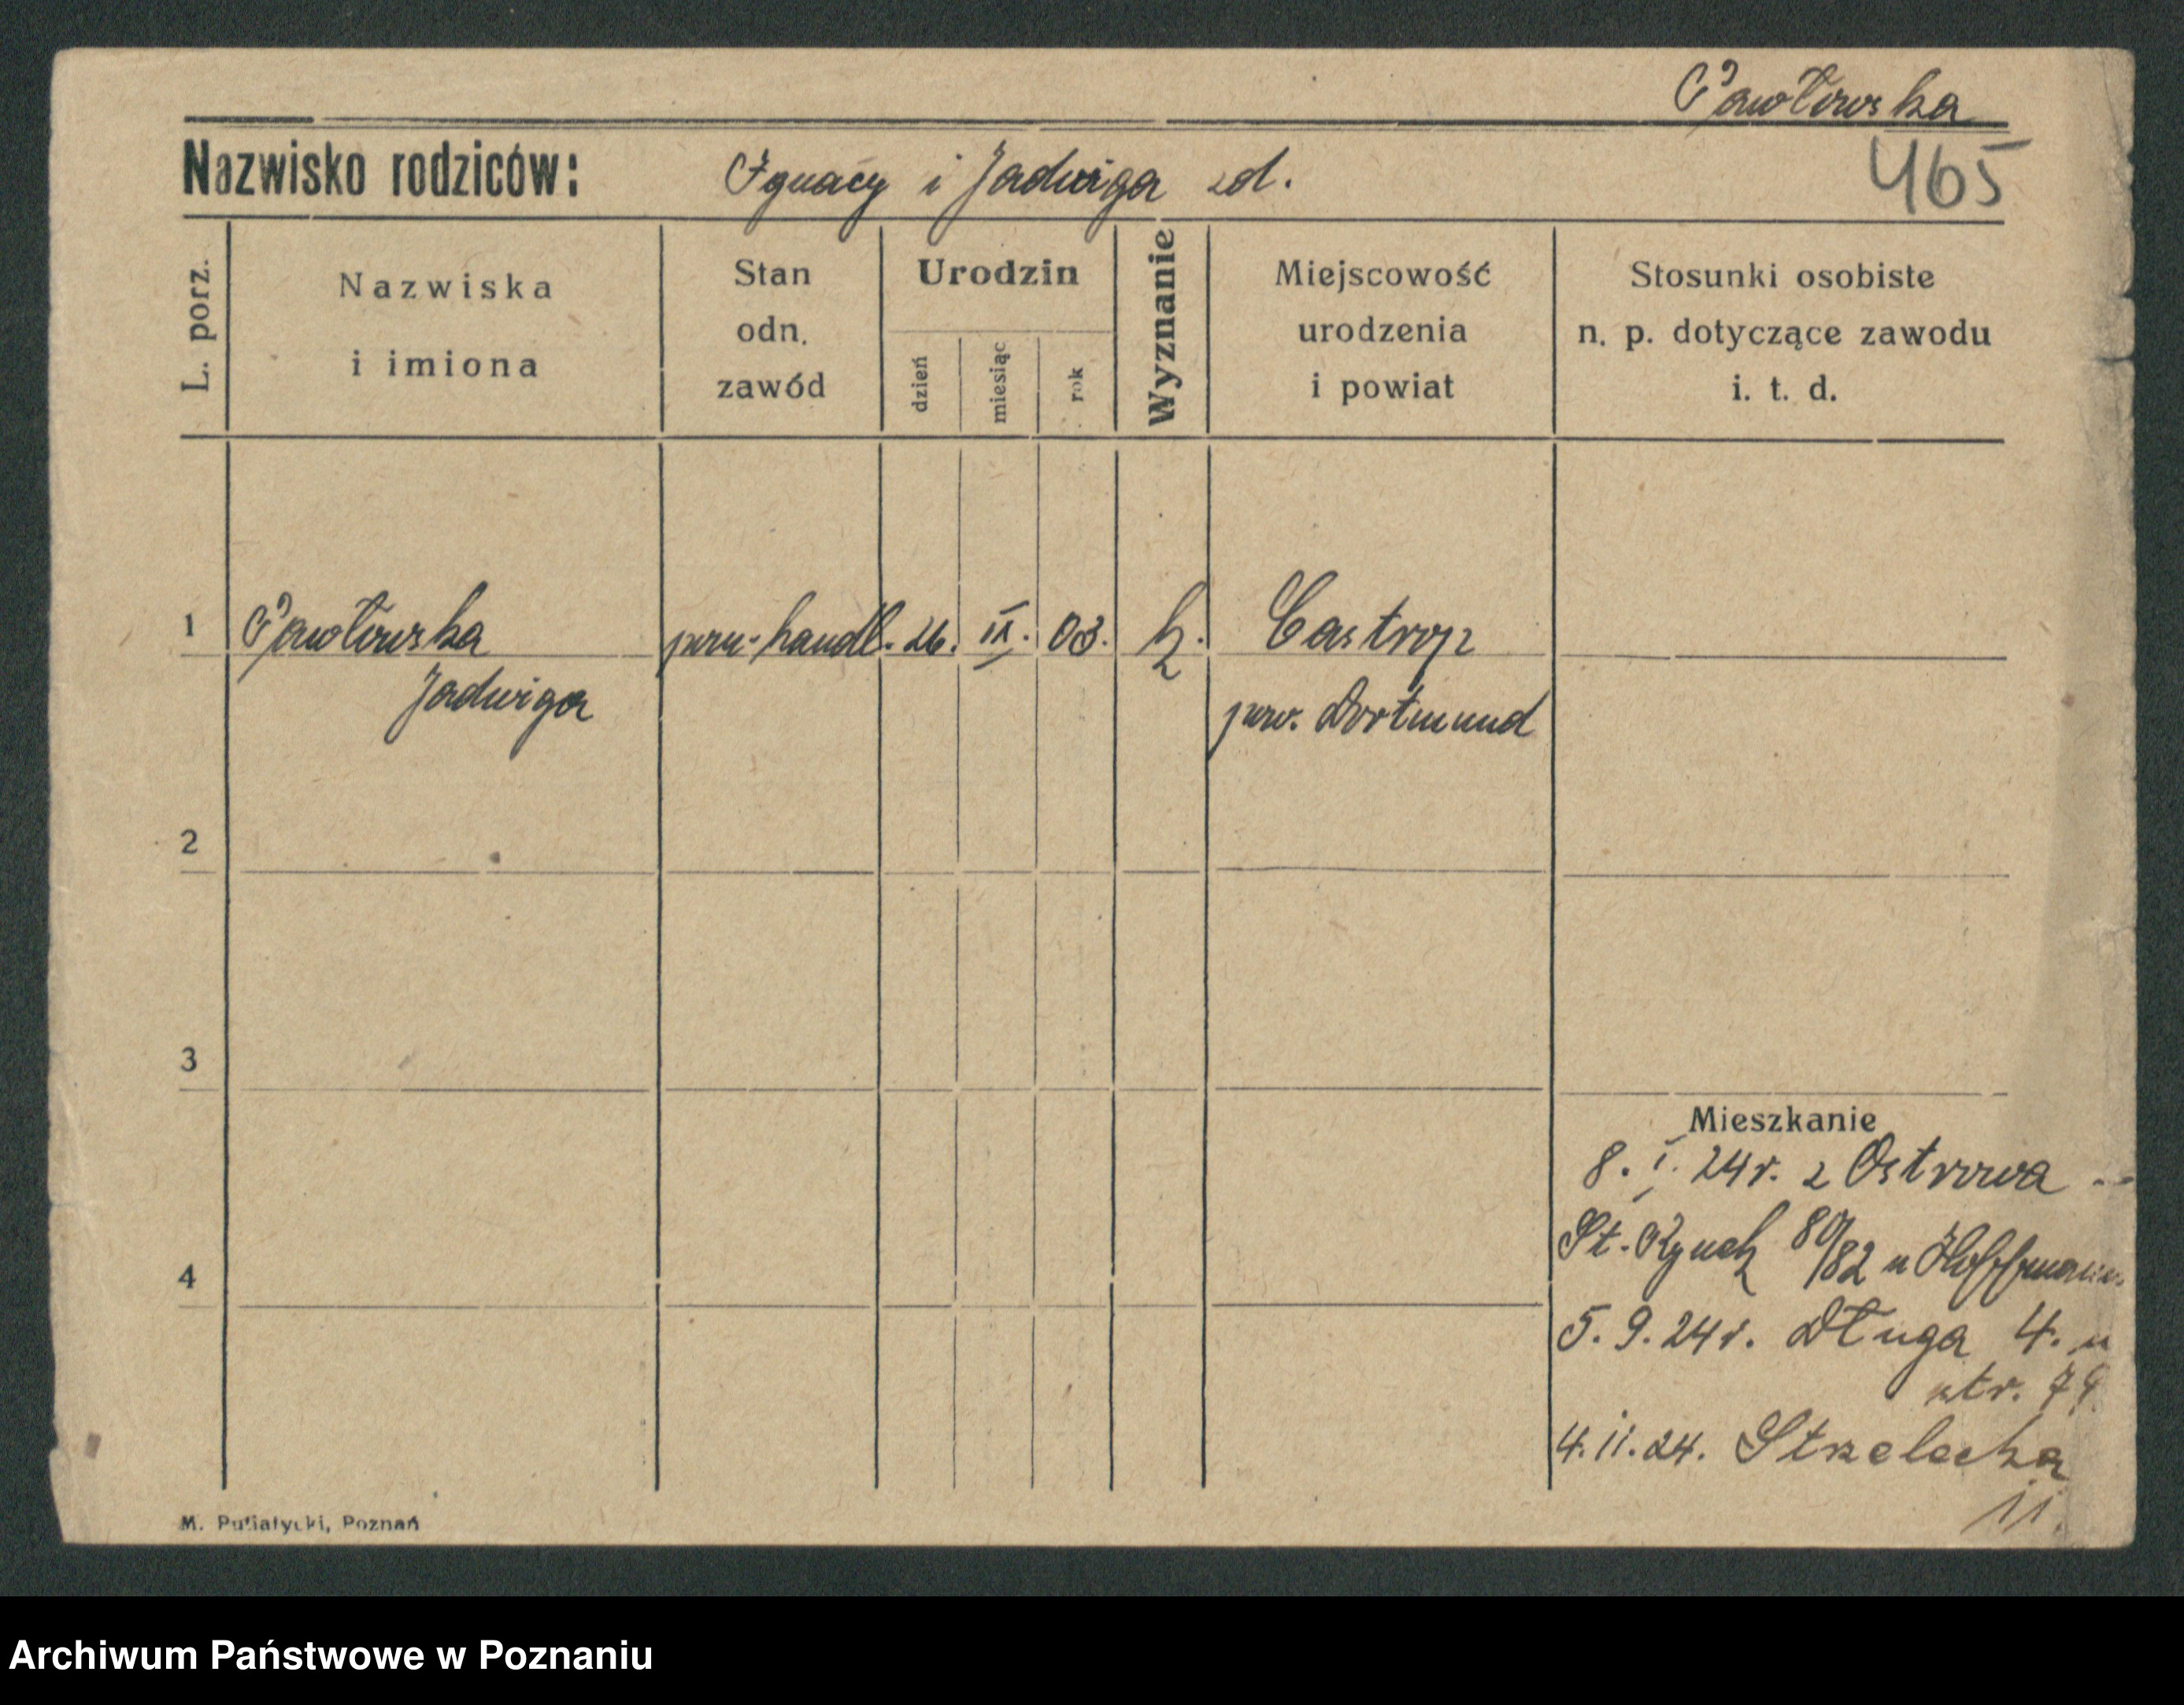 Pawłowska
465
Nazwisko rodziców: Ignacy i Jadwiga zd.
L. porz.
Nazwiska
i imiona
Stan
odn.
zawód
Urodzin
dzień
miesiąc
rok
Wyznanie
Miejscowość
urodzenia
i powiat
Stosunki osobiste
n. p. dotyczące zawodu
i. t. d.
1 Pawłowska pom-handl. 26. IX. 03. k. Castrop
Jadwiga pow. Dortmund
2
3
Mieszkanie
8. I. 24 r. z Ostrowa
St. Rynek 80/82 u Hoffmann
4
5. 9. 24 r. Długa 4. u
str. 79
4. 11. 24. Strzelecka
11.
M. Putiatycki, Poznań
Archiwum Państwowe w Poznaniu